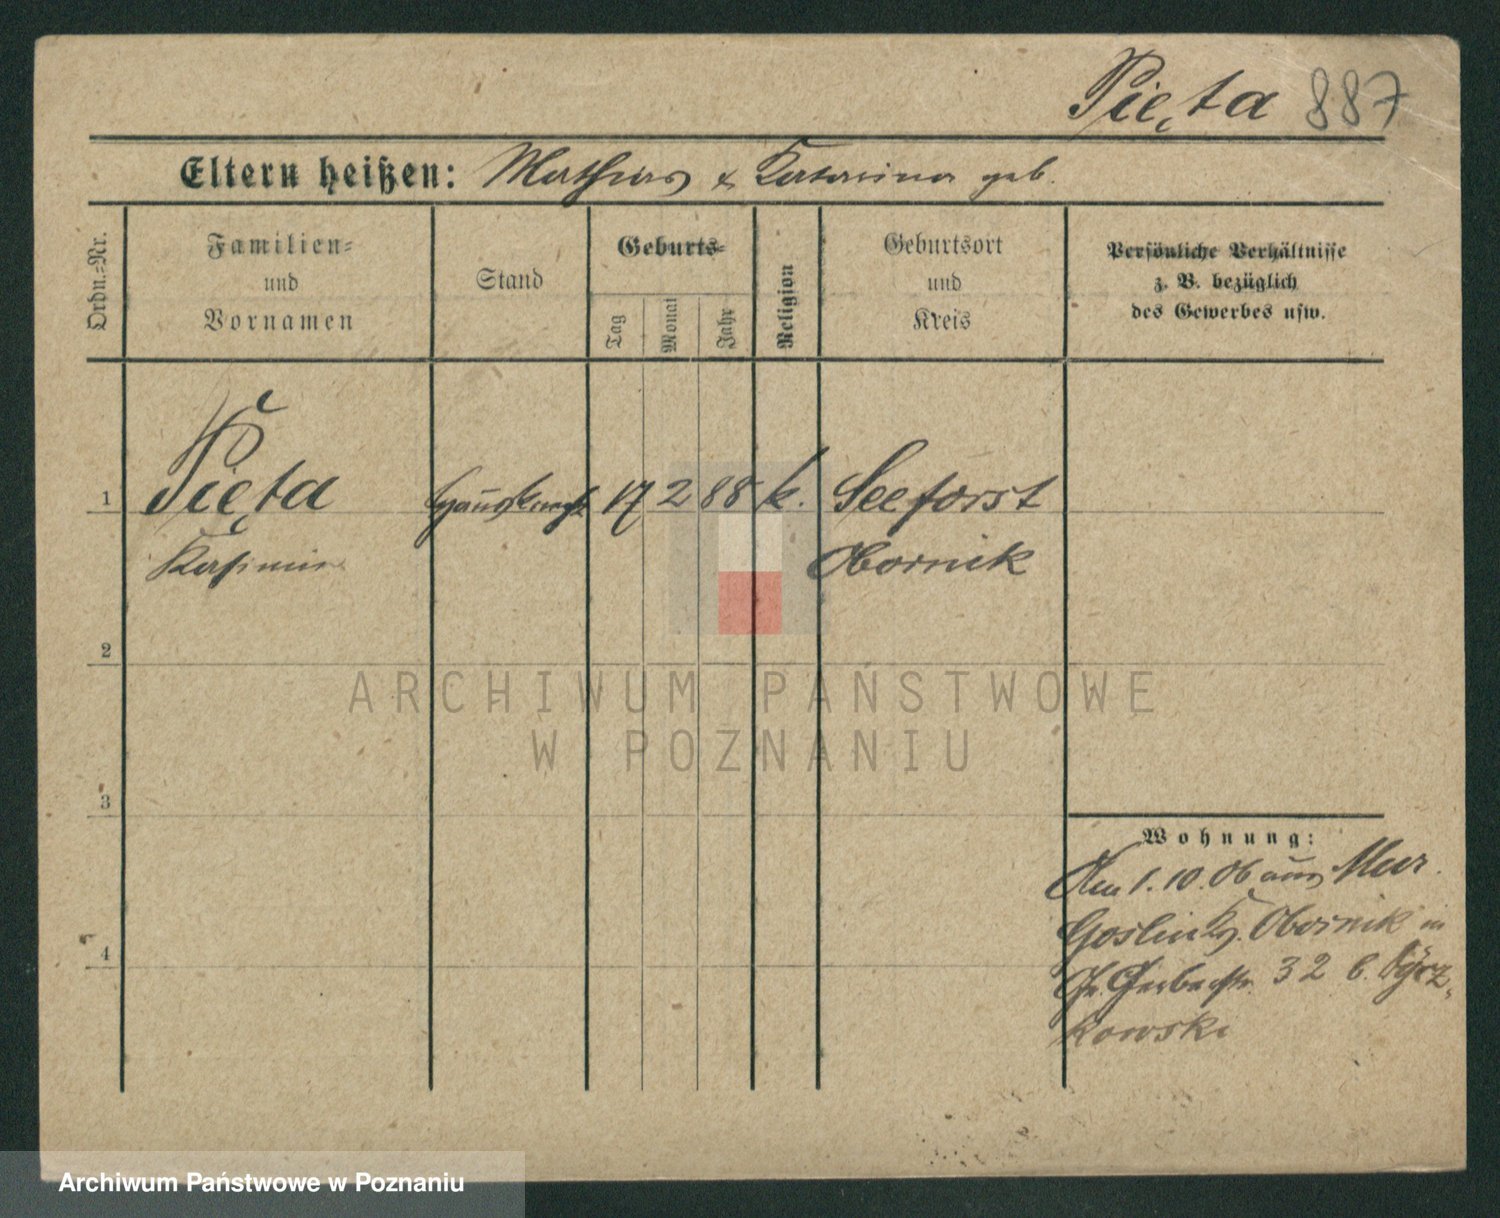 Pięta 887
Eltern heißen: Mathias & Katarina geb.
Ordn.=Nr.
Familien=
und
Vornamen
Stand
Geburts=
Tag
Monat
Jahr
Religion
Geburtsort
und
Kreis
Persönliche Verhältnisse
z. B. bezüglich
des Gewerbes usw.
1 Pięta Hausknecht 17 2 88 k. Seeforst
Kasimir Obornik
2
ARCHIWUM PAŃSTWOWE
W POZNANIU
3
Wohnung:
Am 1. 10. 06 aus Mur.
Goslin Kr. Obornik in
4
Gr. Gerberstr. 32 b.
kowski
Archiwum Państwowe w Poznaniu